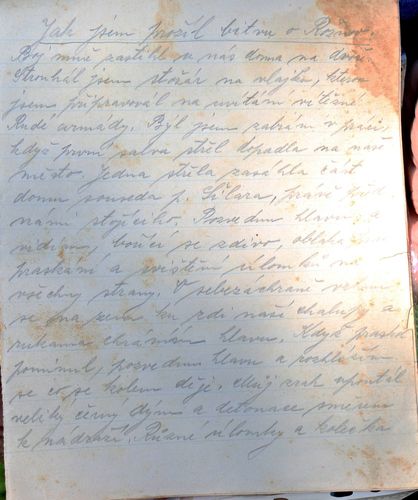 Jak jsem prožil bitvu o Rosice.
Boj mně zastihl u nás doma na dvoře.
Strouhal jsem stožár na vlajku, kterou
jsem připravoval na uvítání vítězné
Rudé armády. Byl jsem zabrán v práci
když první salva střel dopadla na naše
město. Jedna střela zasáhla část
domu souseda p. Šilara, právě před
námi stojícího. Pozvednu hlavu a
vidím, bořící se zdivo, oblaka
praskání a svištění úlomků na
všechny strany. V sebezáchraně
se na zem ku zdi naší chalupy a
rukama chráním hlavu. Když praskot
pominul, pozvednu hlavu a rozhlížím
se co se kolem děje. Můj zrak upoutal
veliký černý dým a detonace směrem
k nádraží. Různé úlomky a kolečka